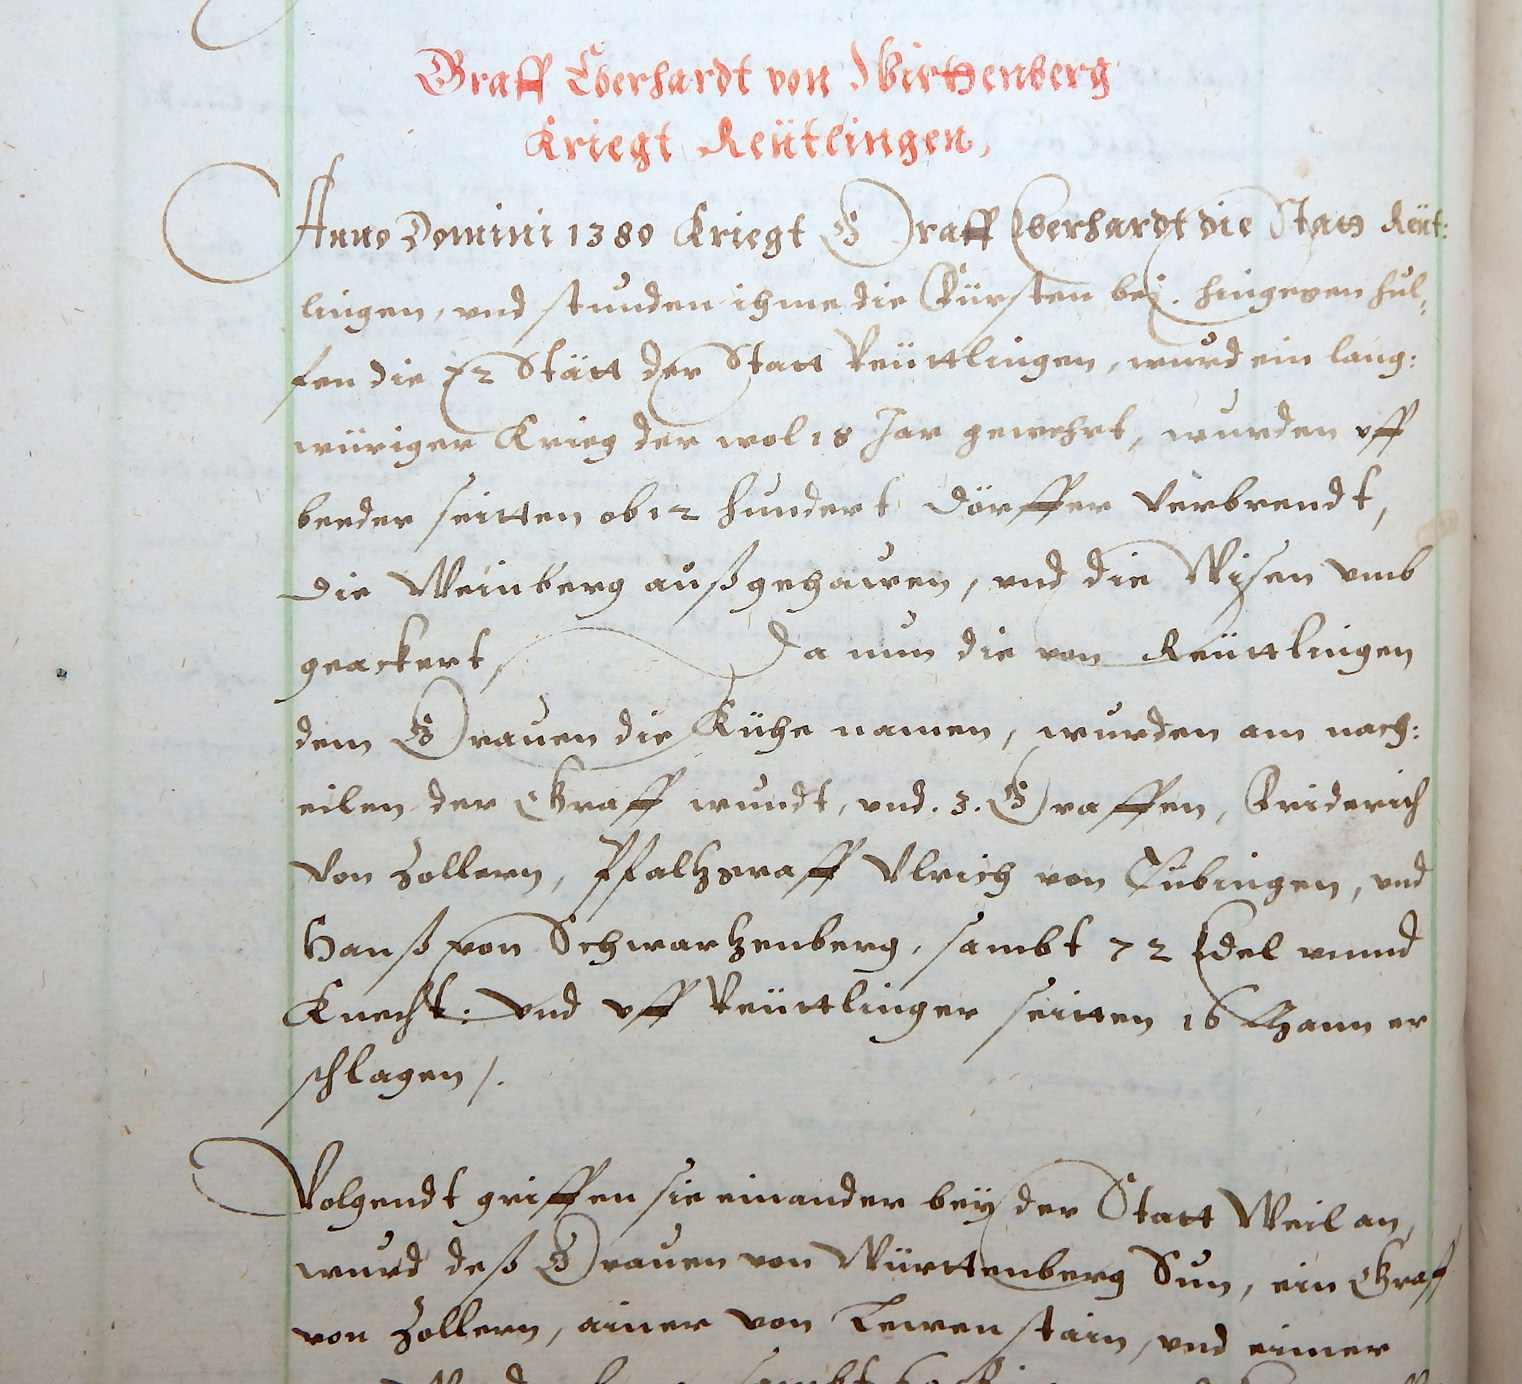 Graff Eberhardt von Wirttenberg
Kriegt Reütlingen,
Anno Domini 1380 Kriegt Graff Eberhardt die Statt Reüt:
lingen, vnd stunden ihme die Fürsten bej. hingegen hul,
fen die 72 Stätt der Statt Reüttlingen, wurd ein lang:
würiger Krieg der wol 18 Jar gewehrt, wurden vff
beeder seitten ob 12 hundert dörffer verbrendt,
die Weinberg außgehawen, vnd die Wisen vmb
geackert, Da nun die von Reüttlingen
dem Grauen die Kühe namen, wurden am nach:
eilen der Graff wundt, vnd .3. Graffen, Friderich
von Zollern, Pfaltzgraff Vlrich von Tübingen, vnd
Hanß von Schwartzenberg, sambt 72 Edel vnnd
Knecht: Vnd vff Reüttlinger seitten 16 Mann er
schlagen /.
Volgendt griffen sie einander bey der Statt Weil an,
wurd deß Grauen von Württenberg Sun, ein Graff
von Zollern, ainer von Lewenstain, vnd einer